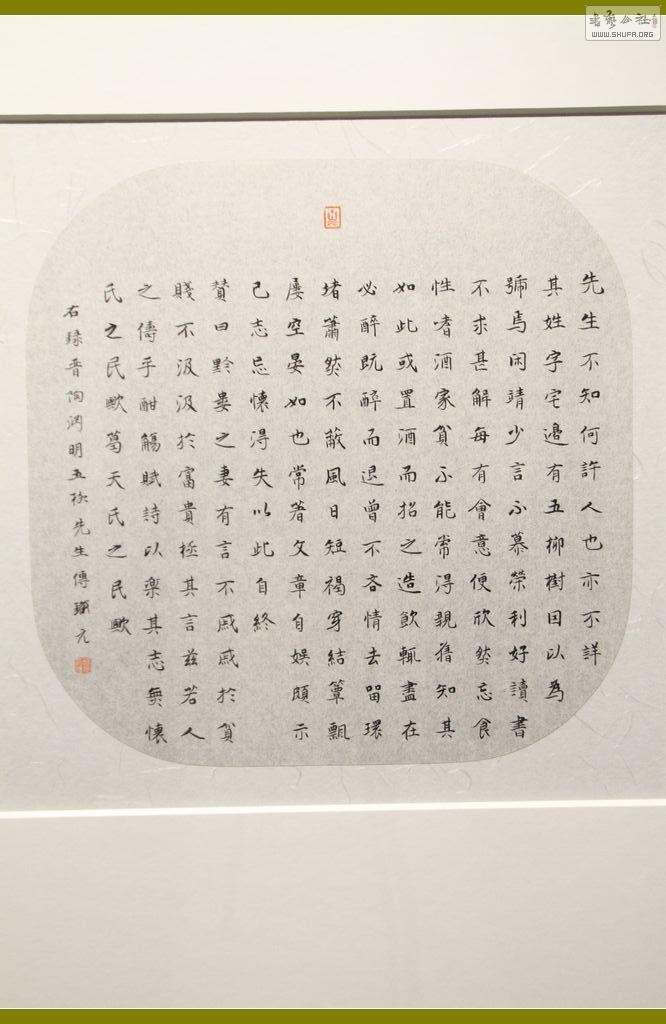 先生不知何許人也亦不詳
其姓字宅邊有五柳樹因以為
號焉閑靖少言不慕榮利好讀書
不求甚解每有會意便欣然忘食
性嗜酒家貧不能常得親舊知其
如此或置酒而招之造飲輒盡在
必醉既醉而退曾不吝情去留環
堵蕭然不蔽風日短褐穿結簞瓢
屢空晏如也常著文章自娛頗示
己志忘懷得失以此自終
贊曰黔婁之妻有言不戚戚於貧
賤不汲汲於富貴極其言茲若人
之儔乎酣觴賦詩以樂其志無懷
氏之民歟葛天氏之民歟
右錄晉陶淵明五柳先生傳 元
書藝公社
WWW.SHUFA.ORG